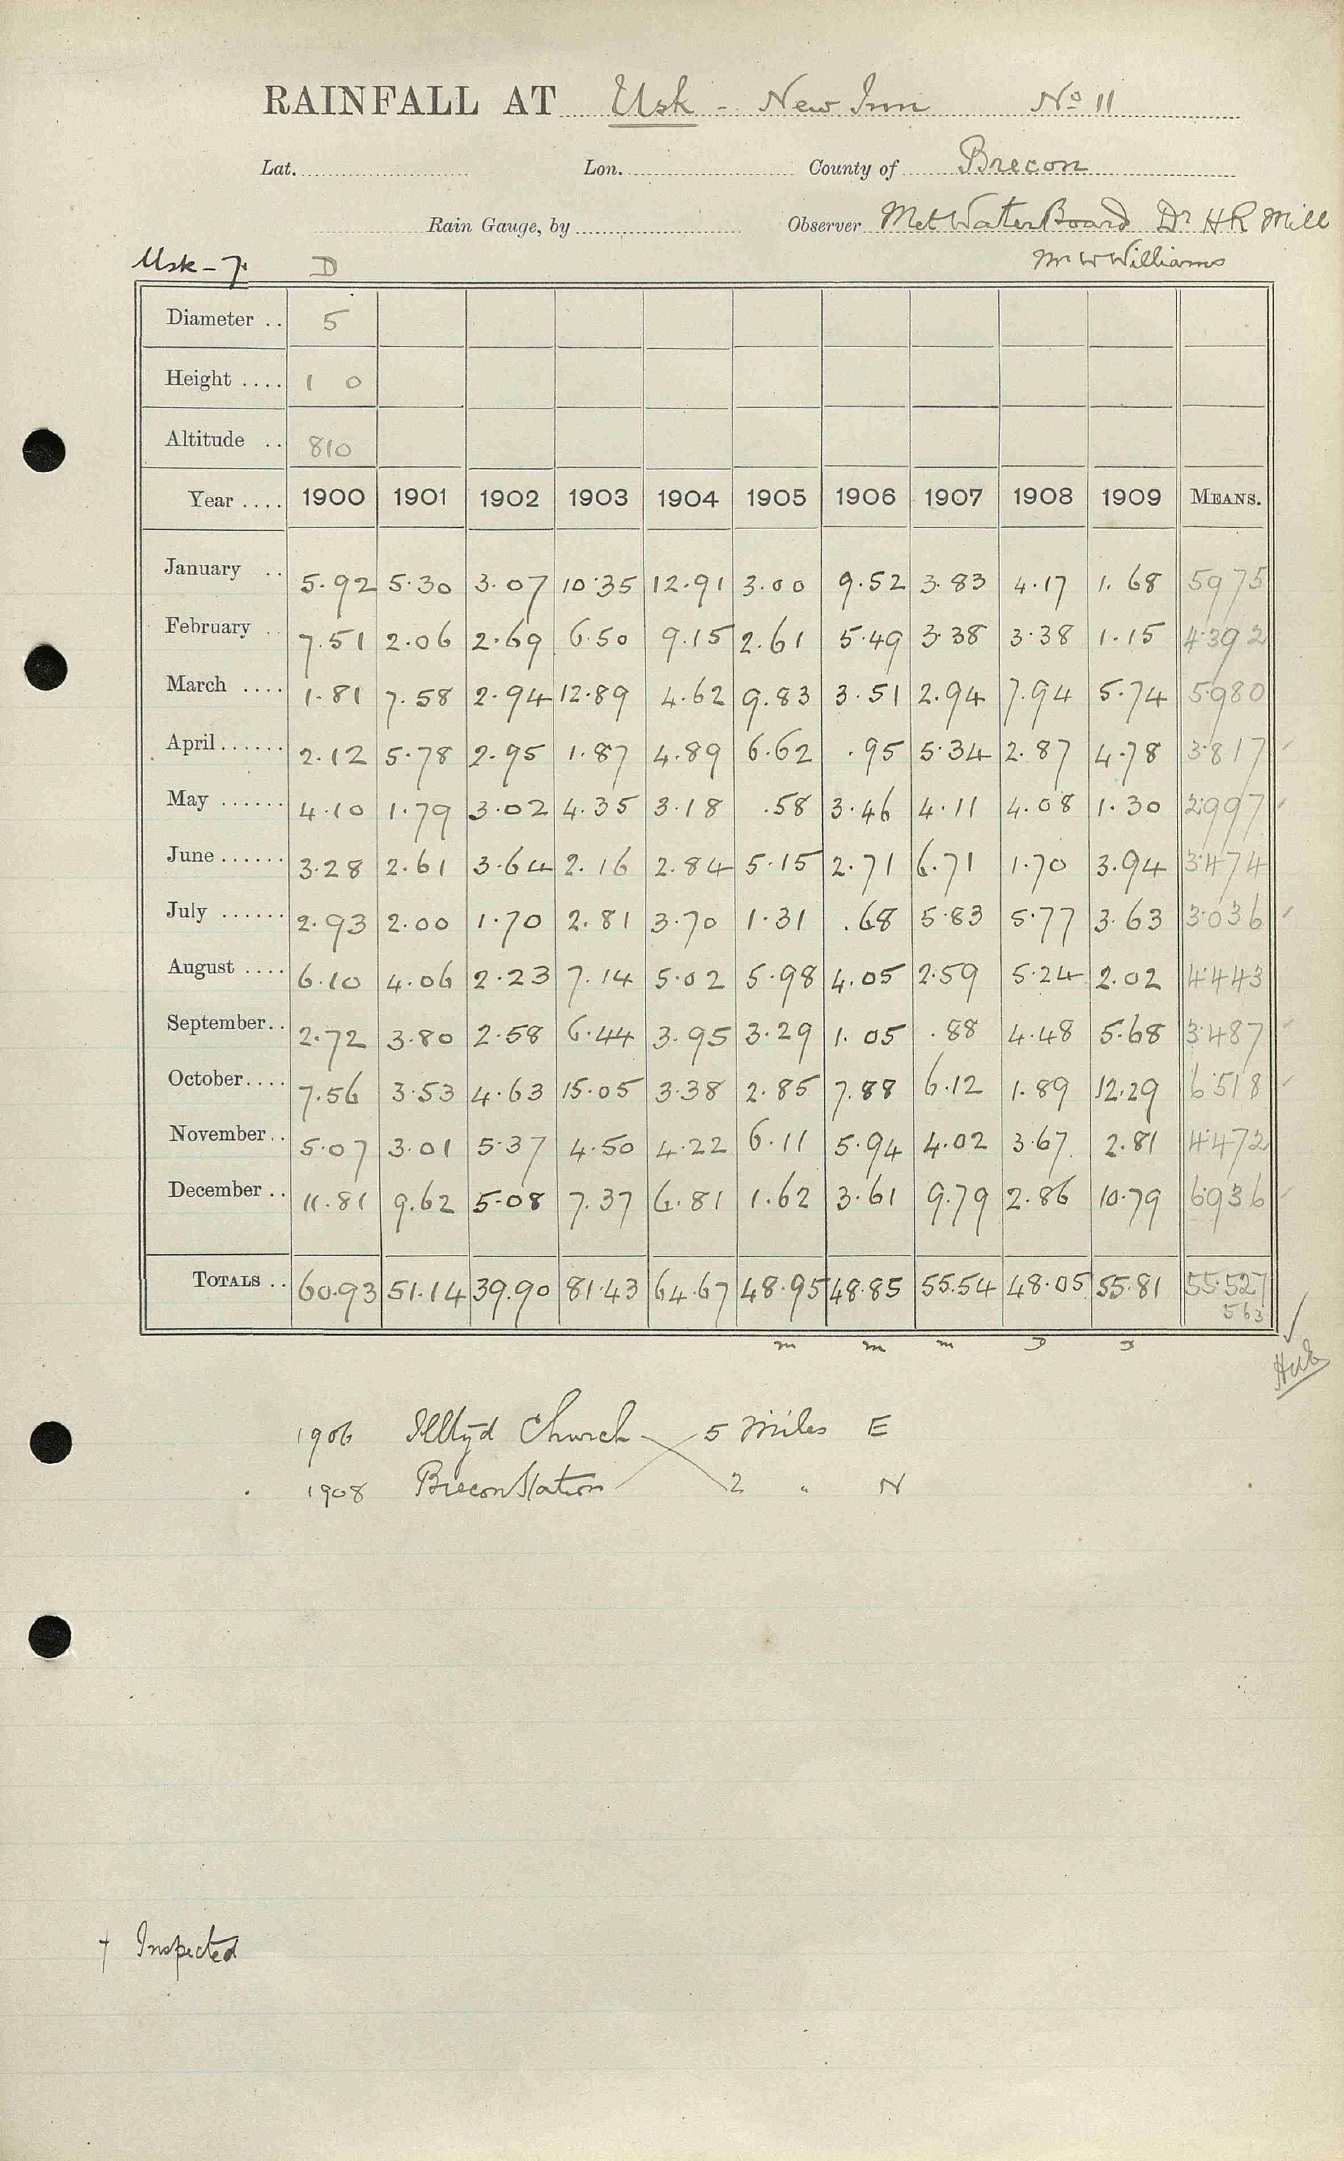 RAINFALL AT Usk - New Inn No 11
Lat. Lon. County of Brecon
Rain Gauge, by Observer Met Water Board Dr H R Mill
Mr W Williams
Usk - 7. D
Diameter .. 5
Height .... 1 0
Altitude .. 810
Year .... 1900 1901 1902 1903 1904 1905 1906 1907 1908 1909 MEANS.
January .. 5.92 5.30 3.07 10.35 12.91 3.00 9.52 3.83 4.17 1.68 5975
February .. 7.51 2.06 2.69 6.50 9.15 2.61 5.49 3.38 3.38 1.15 4.392
March .... 1.81 7.58 2.94 12.89 4.62 9.83 3.51 2.94 7.94 5.74 5.980
April ...... 2.12 5.78 2.95 1.87 4.89 6.62 .95 5.34 2.87 4.78 3.817
May ...... 4.10 1.79 3.02 4.35 3.18 .58 3.46 4.11 4.08 1.30 2.997
June ...... 3.28 2.61 3.64 2.16 2.84 5.15 2.71 6.71 1.70 3.94 3.474
July ...... 2.93 2.00 1.70 2.81 3.70 1.31 .68 5.83 5.77 3.63 3.036
August .... 6.10 4.06 2.23 7.14 5.02 5.98 4.05 2.59 5.24 2.02 4.443
September .. 2.72 3.80 2.58 6.44 3.95 3.29 1.05 .88 4.48 5.68 3.487
October .... 7.56 3.53 4.63 15.05 3.38 2.85 7.88 6.12 1.89 12.29 6.518
November .. 5.07 3.01 5.37 4.50 4.22 6.11 5.94 4.02 3.67 2.81 4.472
December .. 11.81 9.62 5.08 7.37 6.81 1.62 3.61 9.79 2.86 10.79 6.936
TOTALS .. 60.93 51.14 39.90 81.43 64.67 48.95 48.85 55.54 48.05 55.81 55.527
563
m m m D
1906 Illtyd Church 5 Miles E
1908 Brecon Station 2 " N
† Inspected